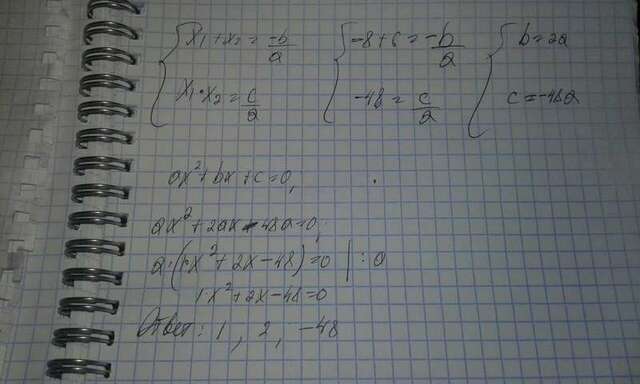 x₁+x₂=-b/a
x₁·x₂=c/a
-8+6=-b/a
-48=c/a
b=2a
c=-48a
ax²+bx+c=0;
ax²+2ax-48a=0;
a·(x²+2x-48)=0 |:a
1x²+2x-48=0
Ответ: 1, 2, -48